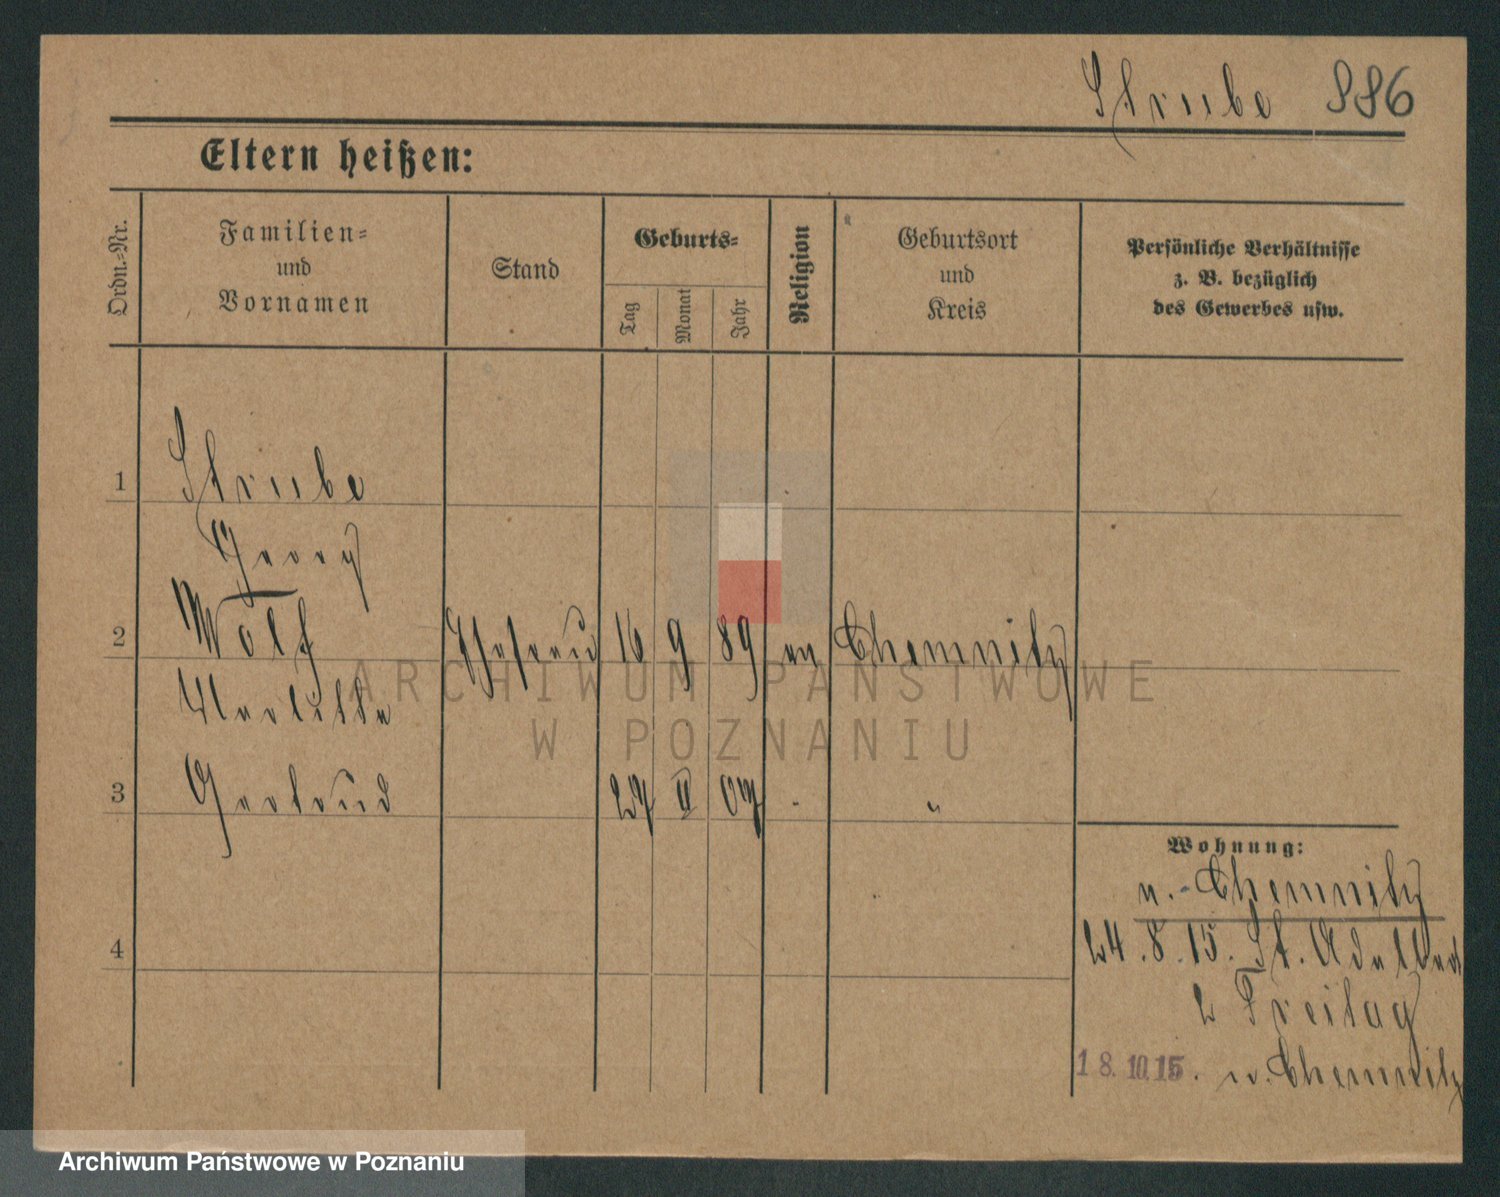 Strube 886
Eltern heißen:
Ordn.-Nr.
Familien-
und
Vornamen
Stand
Geburts-
Tag
Monat
Jahr
Religion
Geburtsort
und
Kreis
Persönliche Verhältnisse
z. B. bezüglich
des Gewerbes usw.
1 Strube
Georg
2 Wolf Ehefrau 16 9 89 ev Chemnitz
3 Gertrud 27 II 07 "
4
Wohnung:
n. Chemnitz
24.8.15. St. Adalbert
2 Freitag
18.10.15. n. Chemnitz
ARCHIWUM PAŃSTWOWE
W POZNANIU
Archiwum Państwowe w Poznaniu